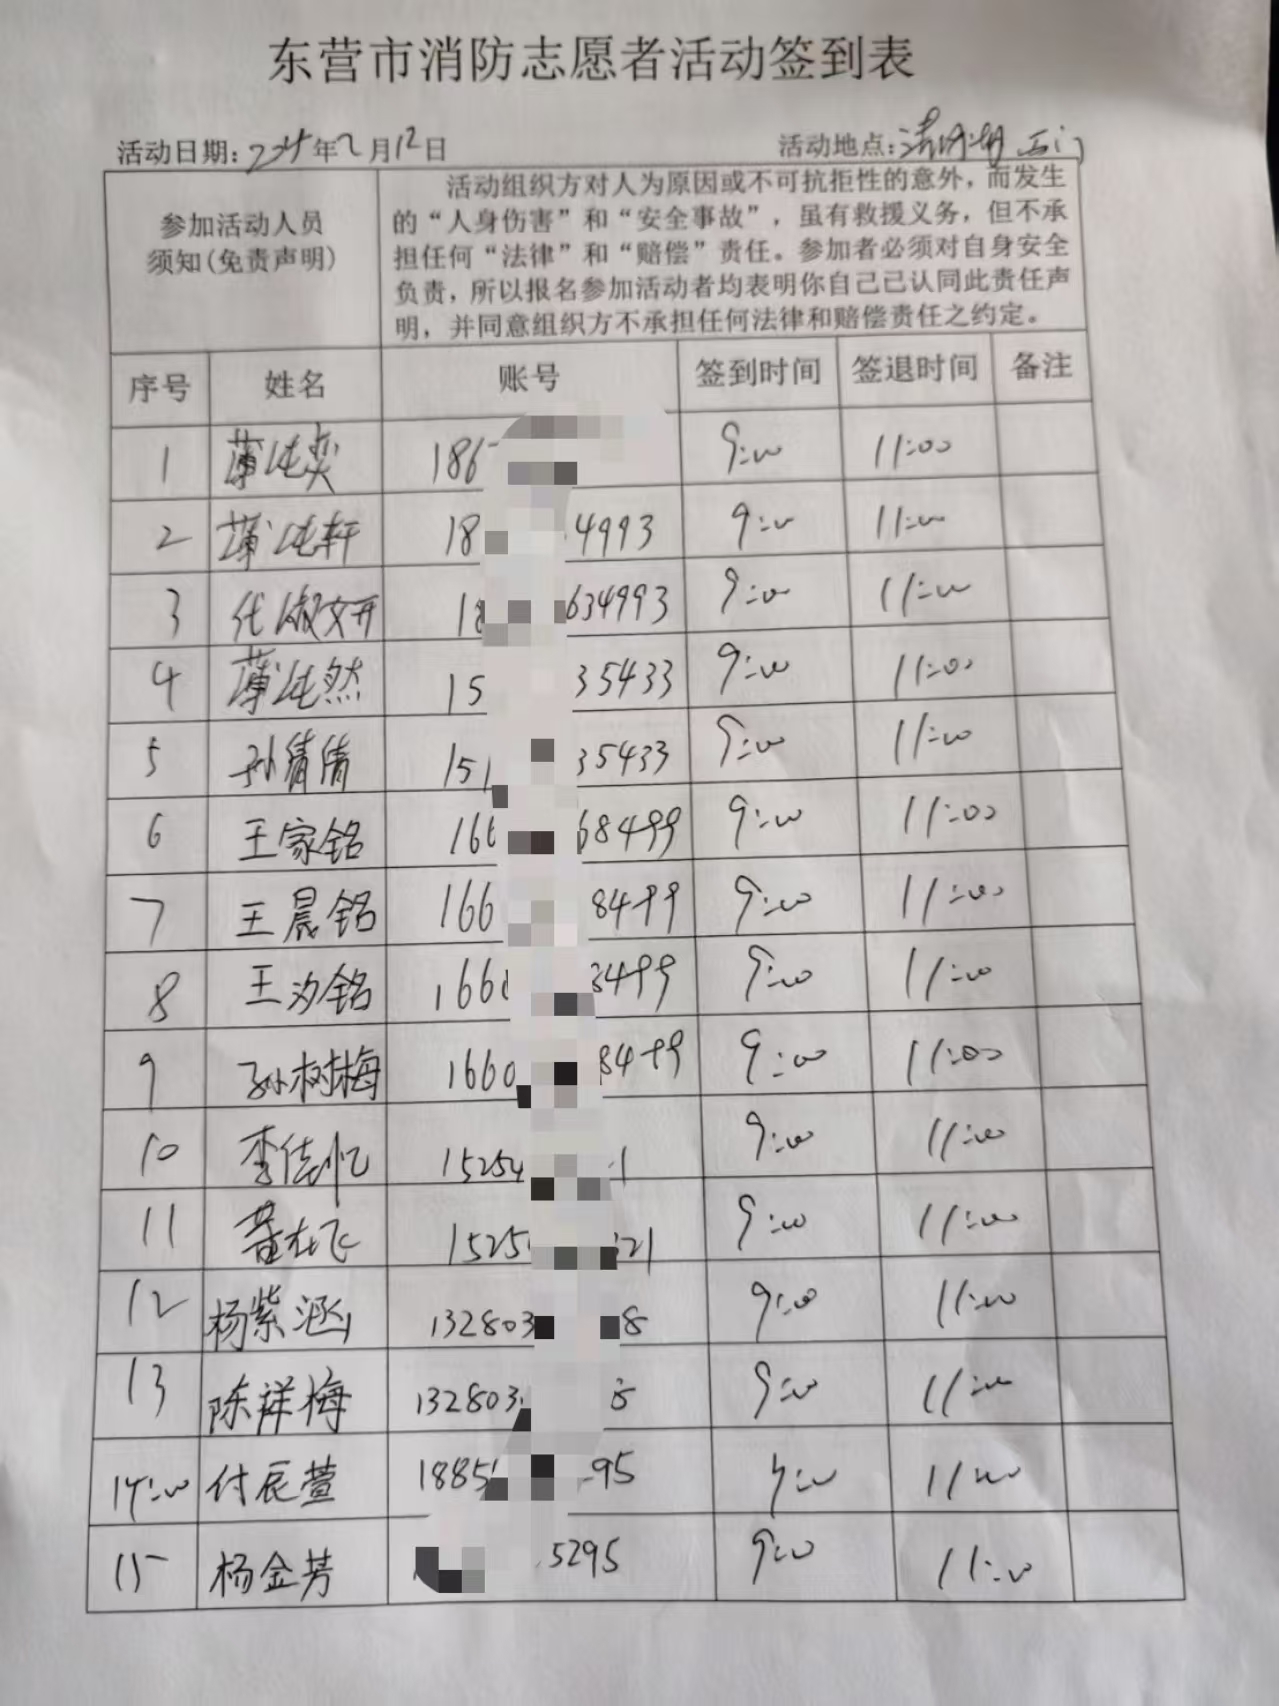 东营市消防志愿者活动签到表
活动日期: 年2月12日 活动地点:
参加活动人员
须知(免责声明)
活动组织方对人为原因或不可抗拒性的意外，而发生
的“人身伤害”和“安全事故”，虽有救援义务，但不承
担任何“法律”和“赔偿”责任。参加者必须对自身安全
负责，所以报名参加活动者均表明你自己已认同此责任声
明，并同意组织方不承担任何法律和赔偿责任之约定。
序号 姓名 账号 签到时间 签退时间 备注
1 薄纯奕 186 9:00 11:00
2 薄纯轩 18 4993 9:00 11:00
3 代淑妍 18 634993 9:00 11:00
4 薄纯然 15 35433 9:00 11:00
5 孙倩倩 151 35433 9:00 11:00
6 王家铭 166 68499 9:00 11:00
7 王晨铭 166 8499 9:00 11:00
8 王汐铭 1660 8499 9:00 11:00
9 孙树梅 1660 8499 9:00 11:00
10 李佳忆 15254 1 9:00 11:00
11 飞 1525 321 9:00 11:00
12 杨紫涵 132803 8 9:00 11:00
13 陈祥梅 132803 8 9:00 11:00
14:00 付辰萱 1885 95 9:00 11:00
15 杨金芳 5295 9:00 11:00